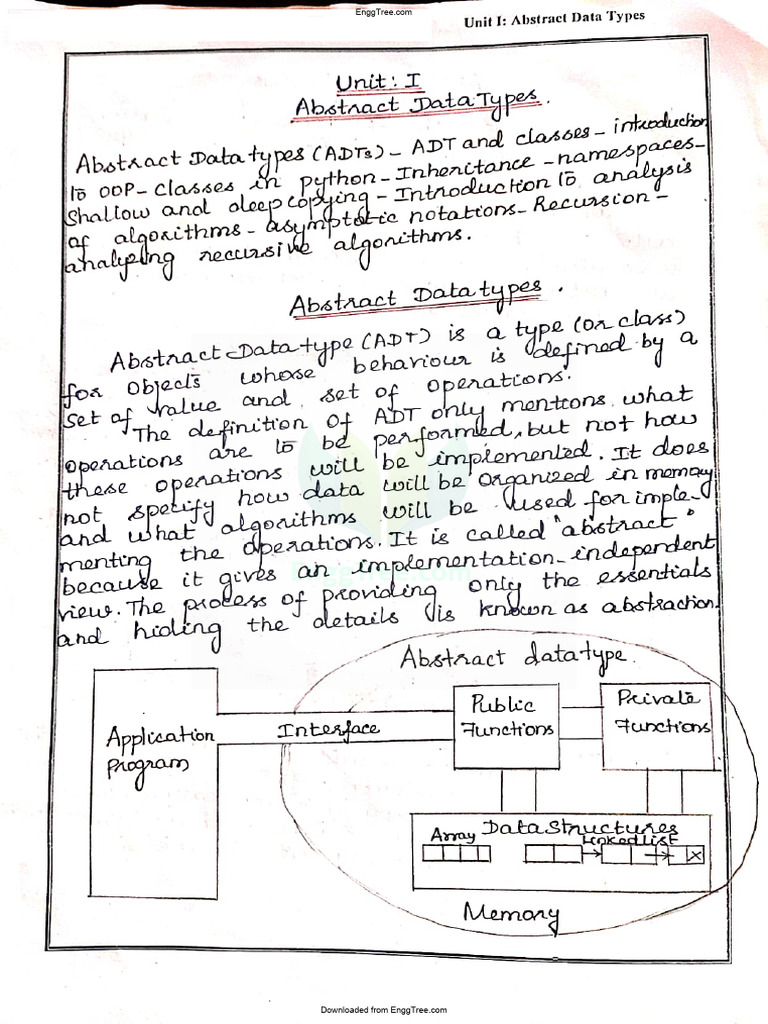 EnggTree.com
Unit I: Abstract Data Types
Unit: I
Abstract Data Types.
Abstract Data types (ADTs) - ADT and classes - introduction
to OOP - classes in python - Inheritance - namespaces -
Shallow and deep copying - Introduction to analysis
of algorithms - asymptotic notations - Recursion -
analyzing recursive algorithms.
Abstract Data types.
Abstract Data type (ADT) is a type (or class)
for objects whose behaviour is defined by a
set of value and set of operations.
The definition of ADT only mentions what
operations are to be performed, but not how
these operations will be implemented. It does
not specify how data will be organized in memory
and what algorithms will be used for imple-
menting the operations. It is called "abstract"
because it gives an implementation-independent
view. The process of providing only the essentials
and hiding the details is known as abstraction.
EnggTree.com
Abstract datatype.
Application
program
Interface
Public
Functions
Private
Functions
Data Structures
Array
Linked List
X
Memory
Downloaded from EnggTree.com